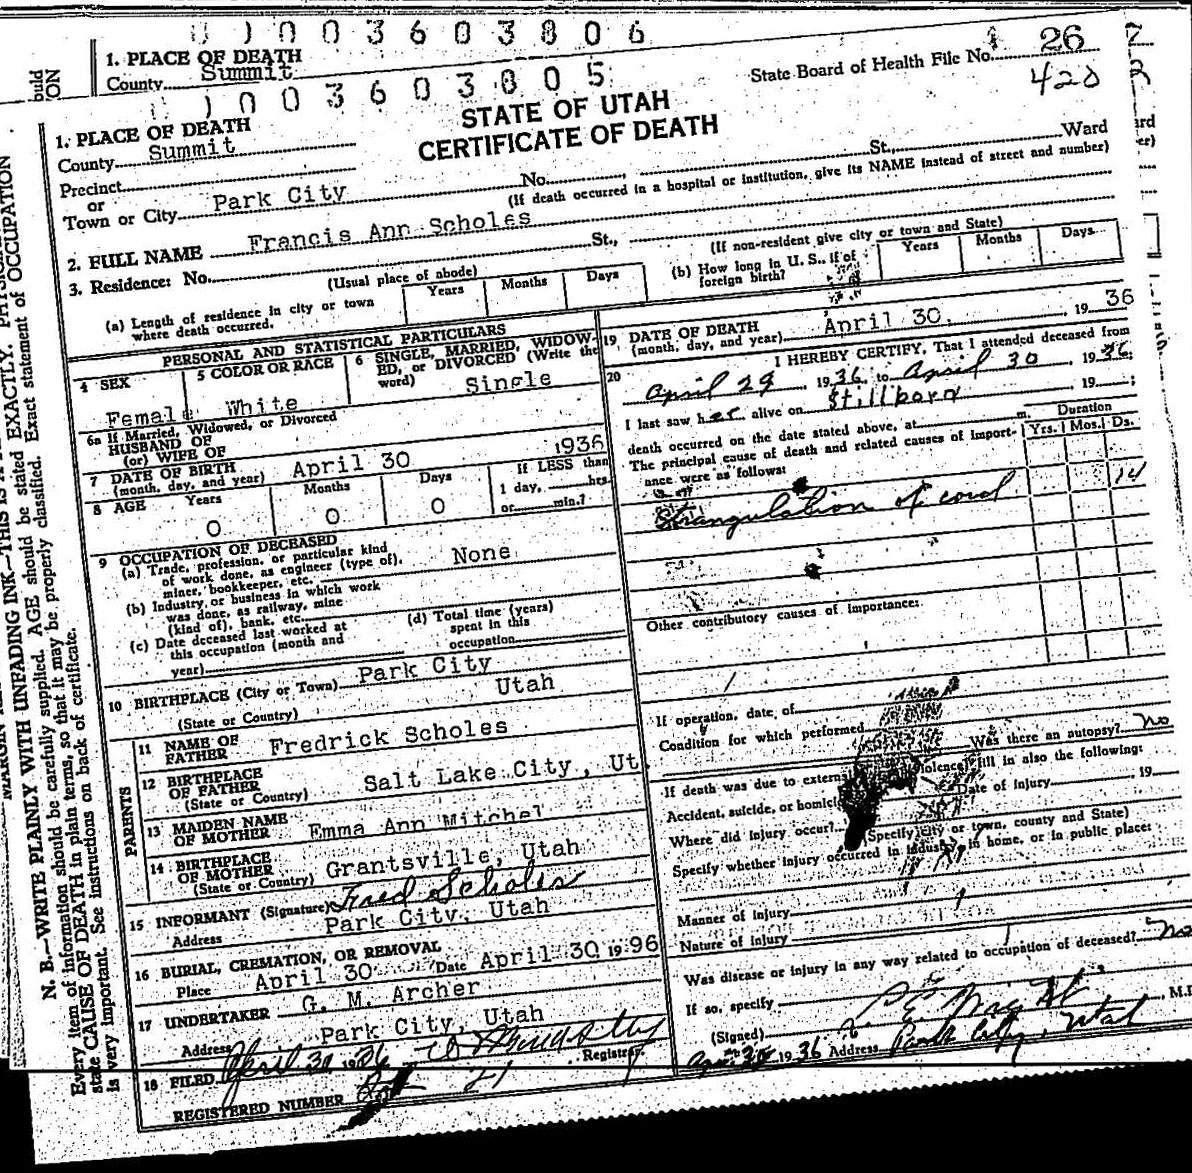 1 0 0 3 6 0 3 8 0 6
1. PLACE OF DEATH
County Summit
State Board of Health File No. 26
420
1 0 0 3 6 0 3 8 0 5
STATE OF UTAH
CERTIFICATE OF DEATH
1. PLACE OF DEATH
County Summit
Precinct
or
Town or City Park City No. St., Ward
(If death occurred in a hospital or institution, give its NAME instead of street and number)
2. FULL NAME Francis Ann Scholes
3. Residence: No. St.,
(Usual place of abode) (If non-resident give city or town and State)
(a) Length of residence in city or town where death occurred. Years Months Days
(b) How long in U. S., if of foreign birth? Years Months Days
PERSONAL AND STATISTICAL PARTICULARS
4 SEX Female
5 COLOR OR RACE White
6 SINGLE, MARRIED, WIDOW-
ED, or DIVORCED (Write the
word) Single
6a If Married, Widowed, or Divorced
HUSBAND OF
(or) WIFE OF
7 DATE OF BIRTH
(month, day, and year) April 30 1936
8 AGE Years Months Days If LESS than
0 0 0 1 day, hrs.
or min.?
9 OCCUPATION OF DECEASED
(a) Trade, profession, or particular kind
of work done, as engineer (type of),
miner, bookkeeper, etc. None
(b) Industry or business in which work
was done, as railway, mine
(kind of), bank, etc.
(c) Date deceased last worked at
this occupation (month and
year)
(d) Total time (years)
spent in this
occupation
10 BIRTHPLACE (City or Town) Park City
(State or Country) Utah
PARENTS
11 NAME OF
FATHER Fredrick Scholes
12 BIRTHPLACE
OF FATHER
(State or Country) Salt Lake City, Ut.
13 MAIDEN NAME
OF MOTHER Emma Ann Mitchel
14 BIRTHPLACE
OF MOTHER
(State or Country) Grantsville, Utah
15 INFORMANT (Signature) Fred Scholes
Address Park City, Utah
16 BURIAL, CREMATION, OR REMOVAL
Place April 30 Date April 30 1996
17 UNDERTAKER G. M. Archer
Address Park City, Utah
18 FILED April 30 1936 Registrar
REGISTERED NUMBER 21
19 DATE OF DEATH
(month, day, and year) April 30, 1936
20 I HEREBY CERTIFY, That I attended deceased from
April 29, 1936, to April 30, 1936;
I last saw her alive on Stillborn, 19 ;
death occurred on the date stated above, at m.
The principal cause of death and related causes of import-
ance were as follows:
Duration
Yrs. Mos. Ds.
Strangulation of cord 14
Other contributory causes of importance:
If operation, date of
Condition for which performed
Was there an autopsy? No
If death was due to external violence, fill in also the following:
Accident, suicide, or homicide Date of injury 19
Where did injury occur?
(Specify city or town, county and State)
Specify whether injury occurred in industry, in home, or in public place:
Manner of injury
Nature of injury
Was disease or injury in any way related to occupation of deceased? No
If so, specify
(Signed) M.D.
1936 Address Park City, Utah
N. B.—WRITE PLAINLY WITH UNFADING INK—THIS IS A
Every item of information should be carefully supplied. AGE should be stated EXACTLY.
state CAUSE OF DEATH in plain terms, so that it may be properly classified. Exact statement of OCCUPATION
is very important. See instructions on back of certificate.